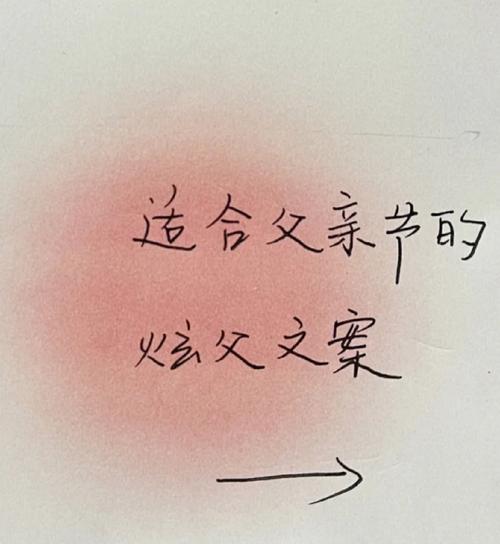 适合父亲节的
炫父文案